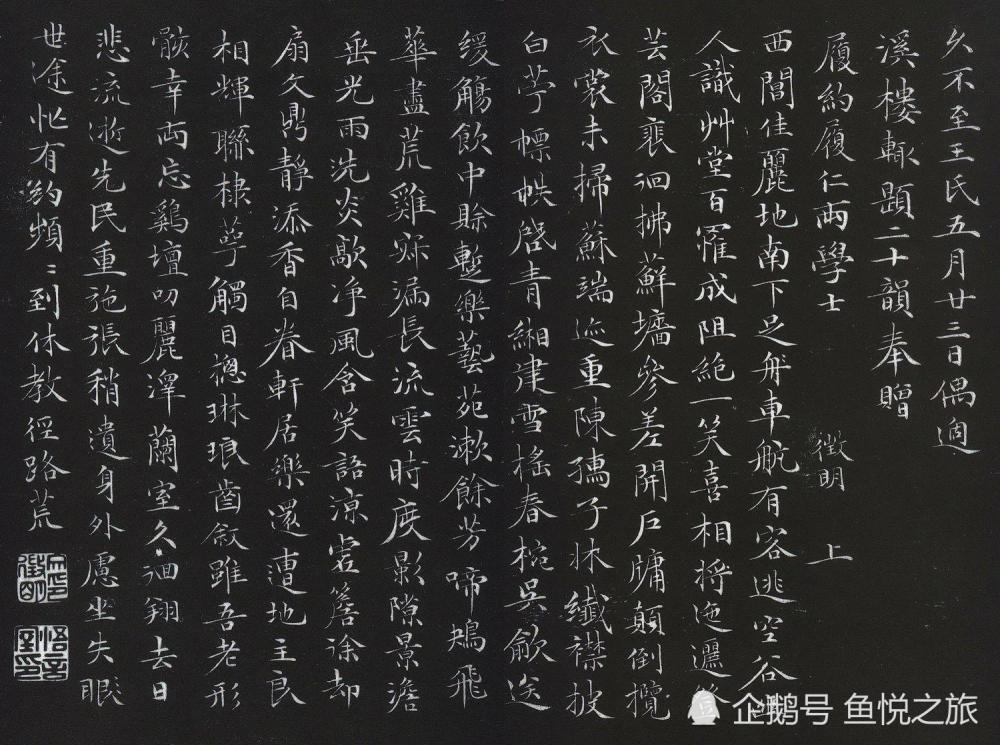 久不至王氏五月廿三日偶過
溪樓輒題二十韻奉贈
履約履仁兩學士 徵明 上
西閶佳麗地南下足舟車航有客逃空谷
人識艸堂百罹成阻絕一笑喜相將迤邐
芸閣裵徊拂蘚墻參差開戶牖顛倒攬
衣裳未掃蘇端迹重陳孺子牀纖襟披
白苧幖帙啓青緗建雪榣春椀吳歈送
緩觴飲中賒蹔樂藝苑漱餘芳啼鴂飛
華盡荒雞寐漏長流雲時度影隙景澹
垂光雨洗炎歊净風含笑語涼岩簷徐却
扇文鼎靜添香自眷軒居樂還遭地主良
相輝聯棣萼觸目摠琳琅齒敘雖吾老形
骸幸両忘鷄壇叨麗澤蘭室久徊翔去日
悲流逝先民重施張稍遺身外慮坐失眼
世途忙有約頻〻到休教徑路荒
企鹅号 鱼悦之旅